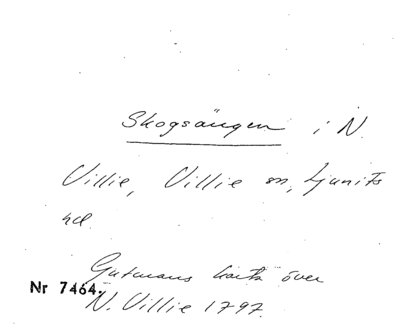 Skogsängen i N.
Villie, Villie sn, Ljunits
hd.
Gutmans karta över
Nr 7464. N. Villie 1797.